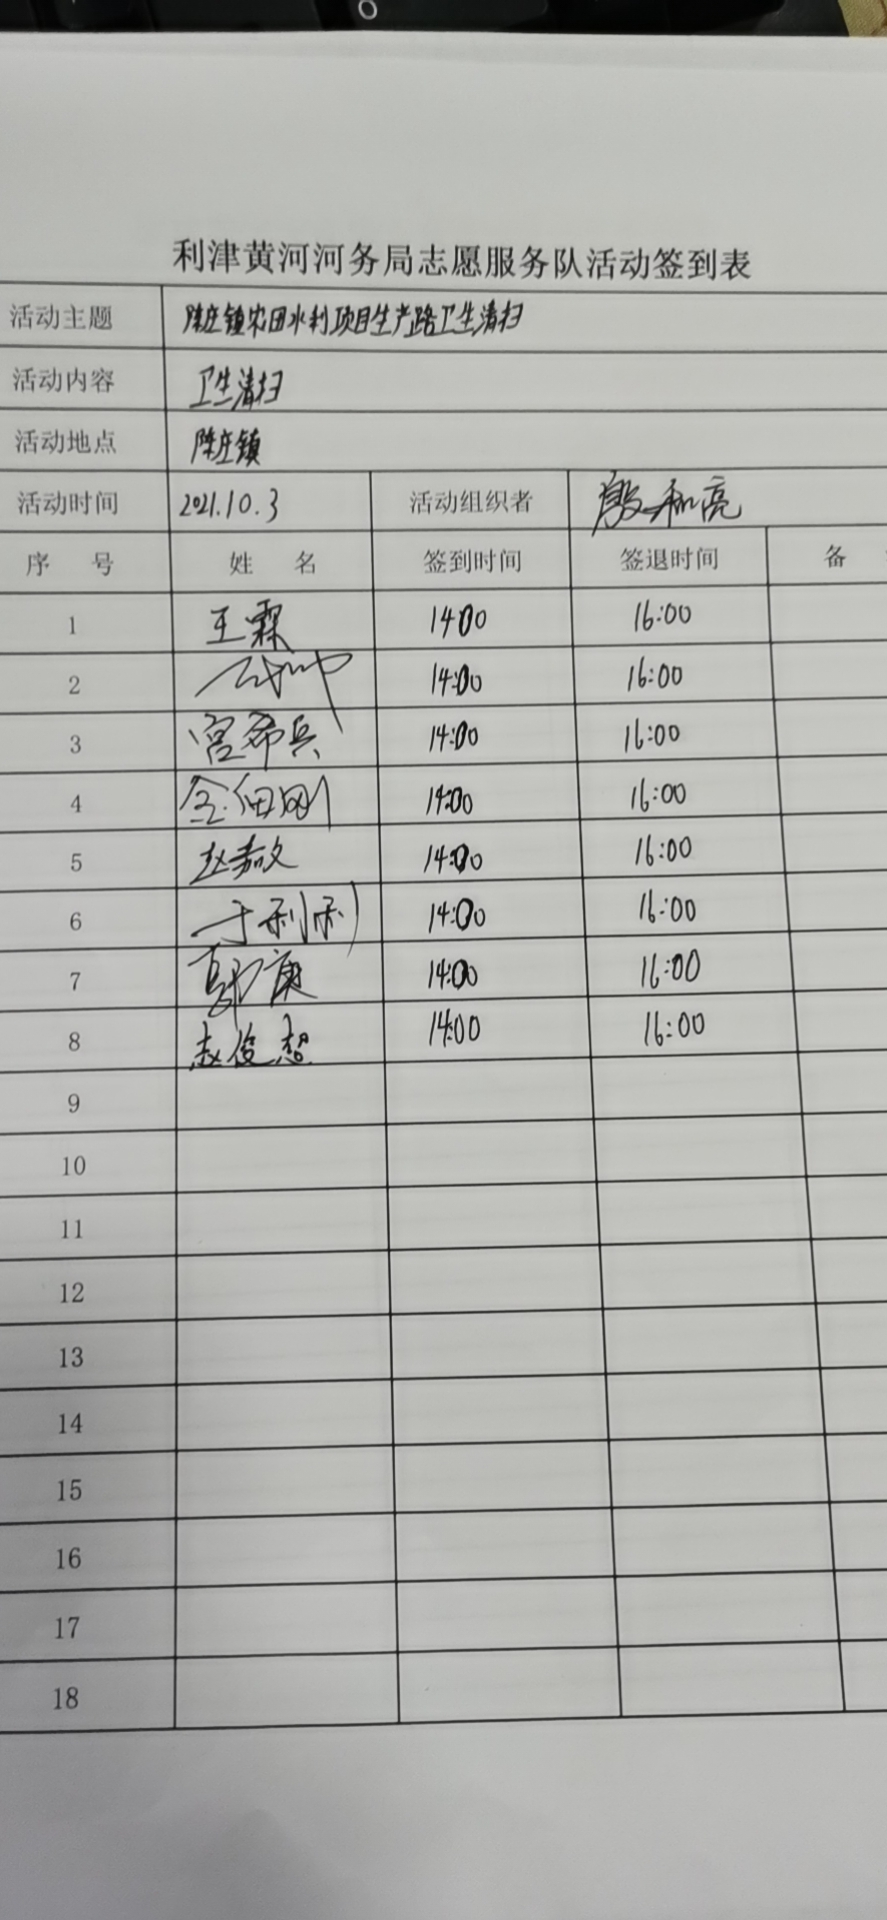 利津黄河河务局志愿服务队活动签到表
活动主题 陈庄镇农田水利项目生产路卫生清扫
活动内容 卫生清扫
活动地点 陈庄镇
活动时间 2021.10.3 活动组织者 殷和亮
序 号 姓 名 签到时间 签退时间 备
1 王霖 14:00 16:00
2 14:00 16:00
3 宫希兵 14:00 16:00
4 14:00 16:00
5 赵嘉文 14:00 16:00
6 于利利 14:00 16:00
7 郭康 14:00 16:00
8 赵俊超 14:00 16:00
9
10
11
12
13
14
15
16
17
18